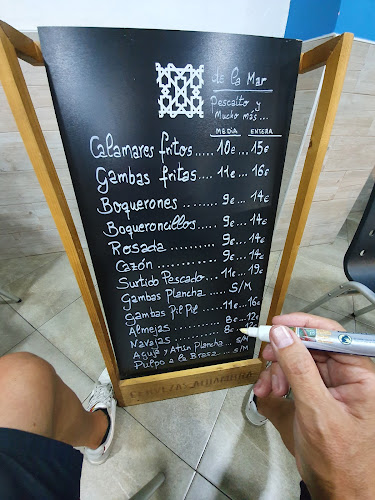 de la Mar
Pescaito y
Mucho más...
MEDIA ENTERA
Calamares fritos..... 10€... 15€
Gambas fritas..... 11€... 16€
Boquerones ........ 9€... 14€
Boqueroncillos..... 9€... 14€
Rosada .......... 9€... 14€
Cazón ........... 9€... 14€
Surtido Pescado... 11€... 19€
Gambas Plancha ... S/M
Gambas Pil Pil ... 11€... 16€
Almejas ......... 8€... 12€
Navajas ......... 8€
Aguja y Atún Plancha... S/M
Pulpo a la Brasa... S/M
CERVEZAS ALHAMBRA